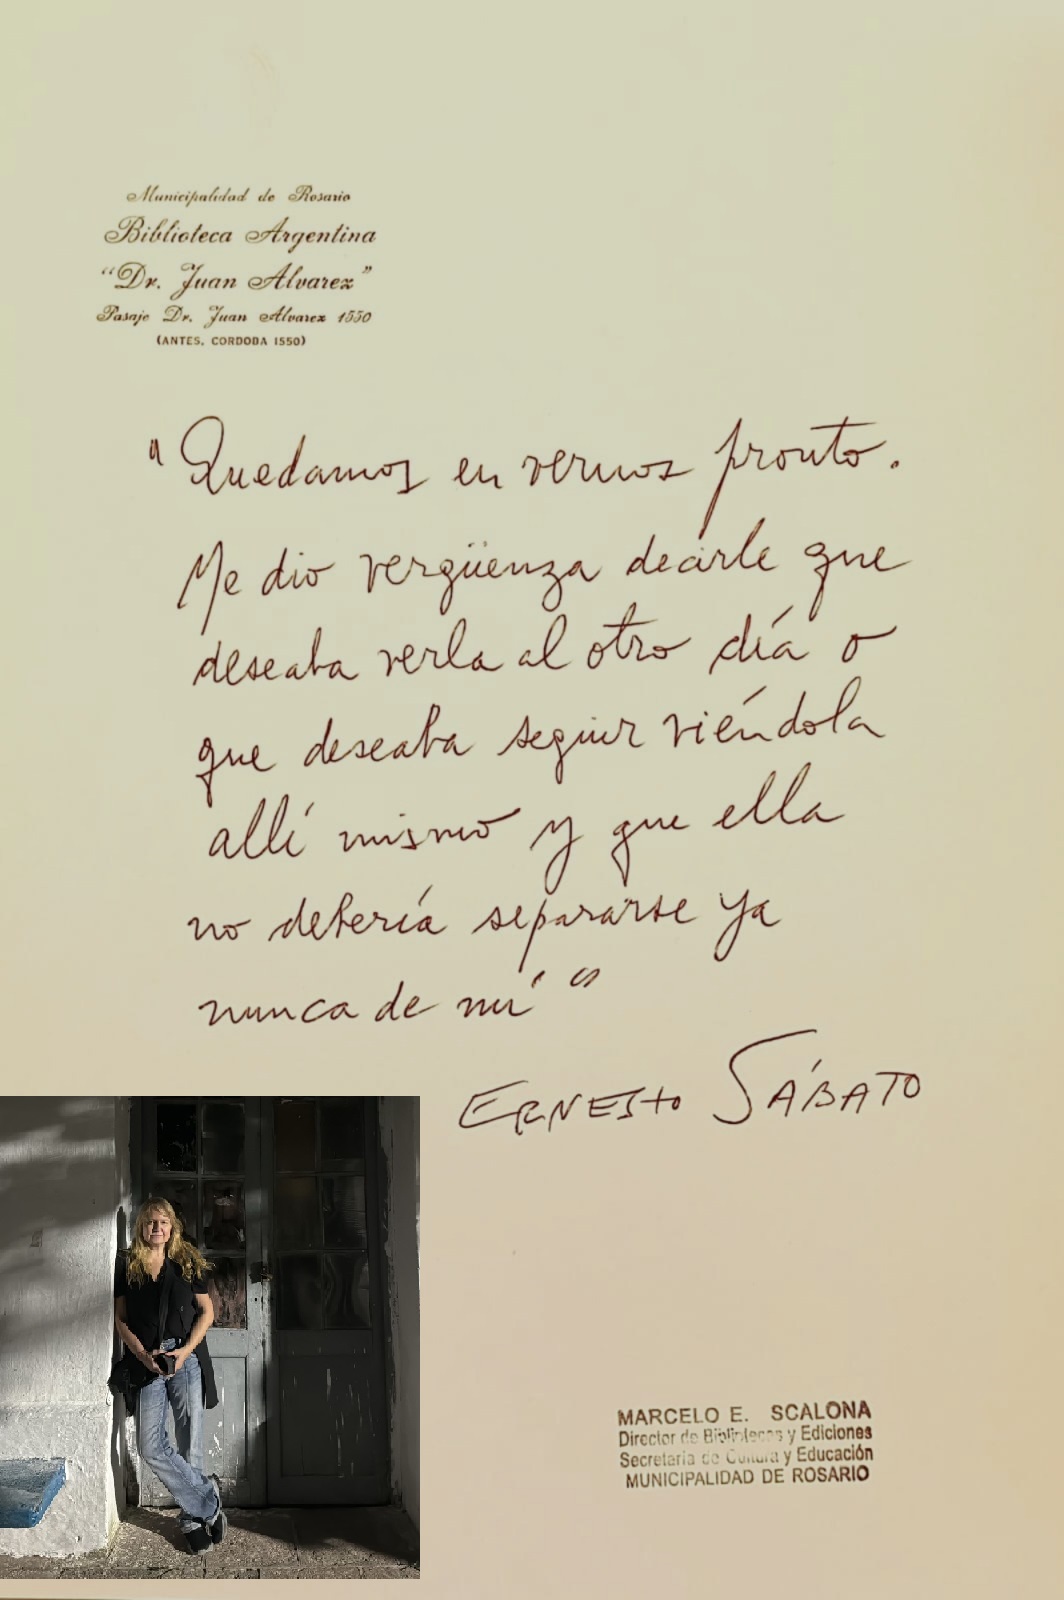 Municipalidad de Rosario
Biblioteca Argentina
“Dr. Juan Alvarez”
Pasaje Dr. Juan Alvarez 1550
(ANTES, CORDOBA 1550)
"Quedamos en vernos pronto.
Me dio vergüenza decirle que
deseaba verla al otro día o
que deseaba seguir viéndola
allí mismo y que ella
no debería separarse ya
nunca de mí"
ERNESTO SÁBATO
MARCELO E. SCALONA
Director de Bibliotecas y Ediciones
Secretaría de Cultura y Educación
MUNICIPALIDAD DE ROSARIO